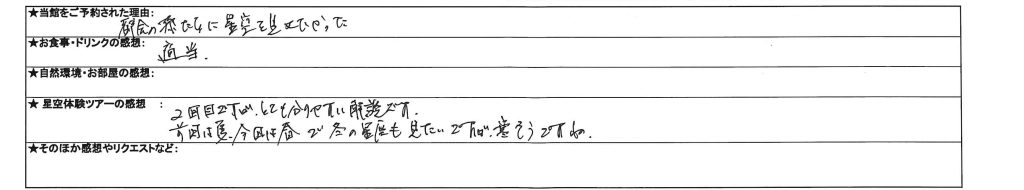 ★当館をご予約された理由:
都会の孫たちに星空を見せたかった
★お食事・ドリンクの感想:
適当.
★自然環境・お部屋の感想:
★ 星空体験ツアーの感想 :
2回目ですが、とても分りやすい解説です.
前回は夏、今回は春で冬の星座も見たいですが、寒そうですね.
★そのほか感想やリクエストなど: